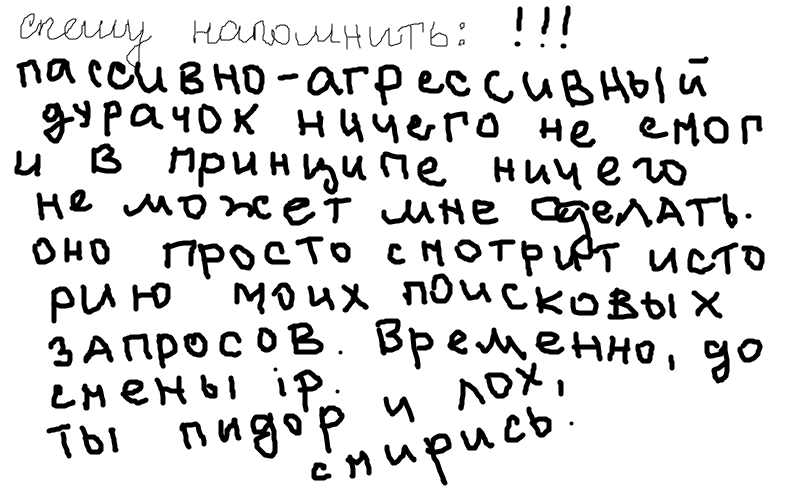 спешу напомнить: !!!
пассивно-агрессивный
дурачок ничего не смог
и в принципе ничего
не может мне сделать.
оно просто смотрит исто
рию моих поисковых
запросов. Временно, до
смены ip.
ты пидор и лох,
смирись.